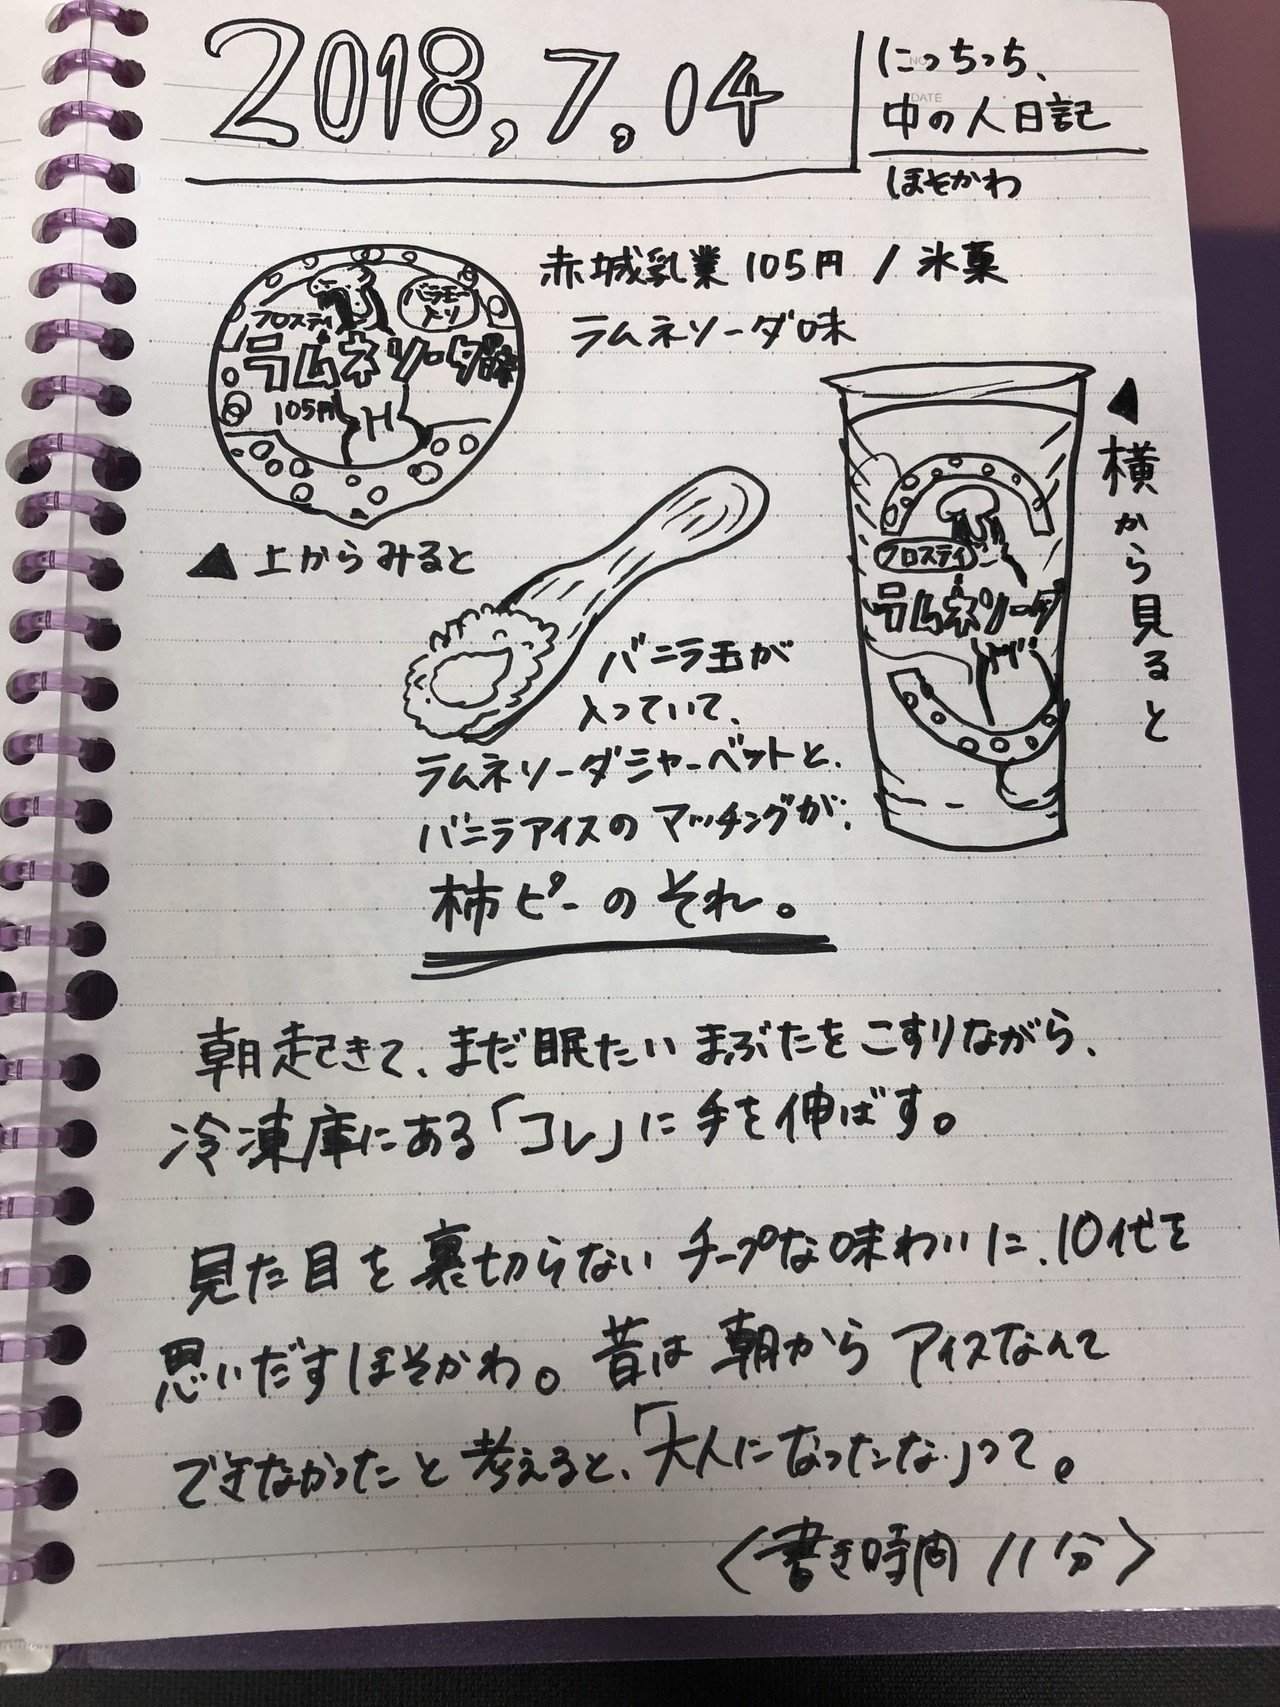 2018.7.04
にっちっち、
中の人日記
ほそかわ
NO.
DATE
赤城乳業 105円 / 氷菓
ラムネソーダ味
フロスティ
バニラモナ入り
ラムネソーダ味
105円
▲上からみると
▲横から見ると
フロスティ
ラムネソーダ
バニラ玉が
入っていて、
ラムネソーダシャーベットと、
バニラアイスのマッチングが、
柿ピーのそれ。
朝起きて、まだ眠たいまぶたをこすりながら、
冷凍庫にある「コレ」に手を伸ばす。
見た目を裏切らないチープな味わいに、10代を
思いだすほそかわ。昔は朝からアイスなんて
できなかったと考えると、「大人になったな」って。
〈書き時間 11分〉